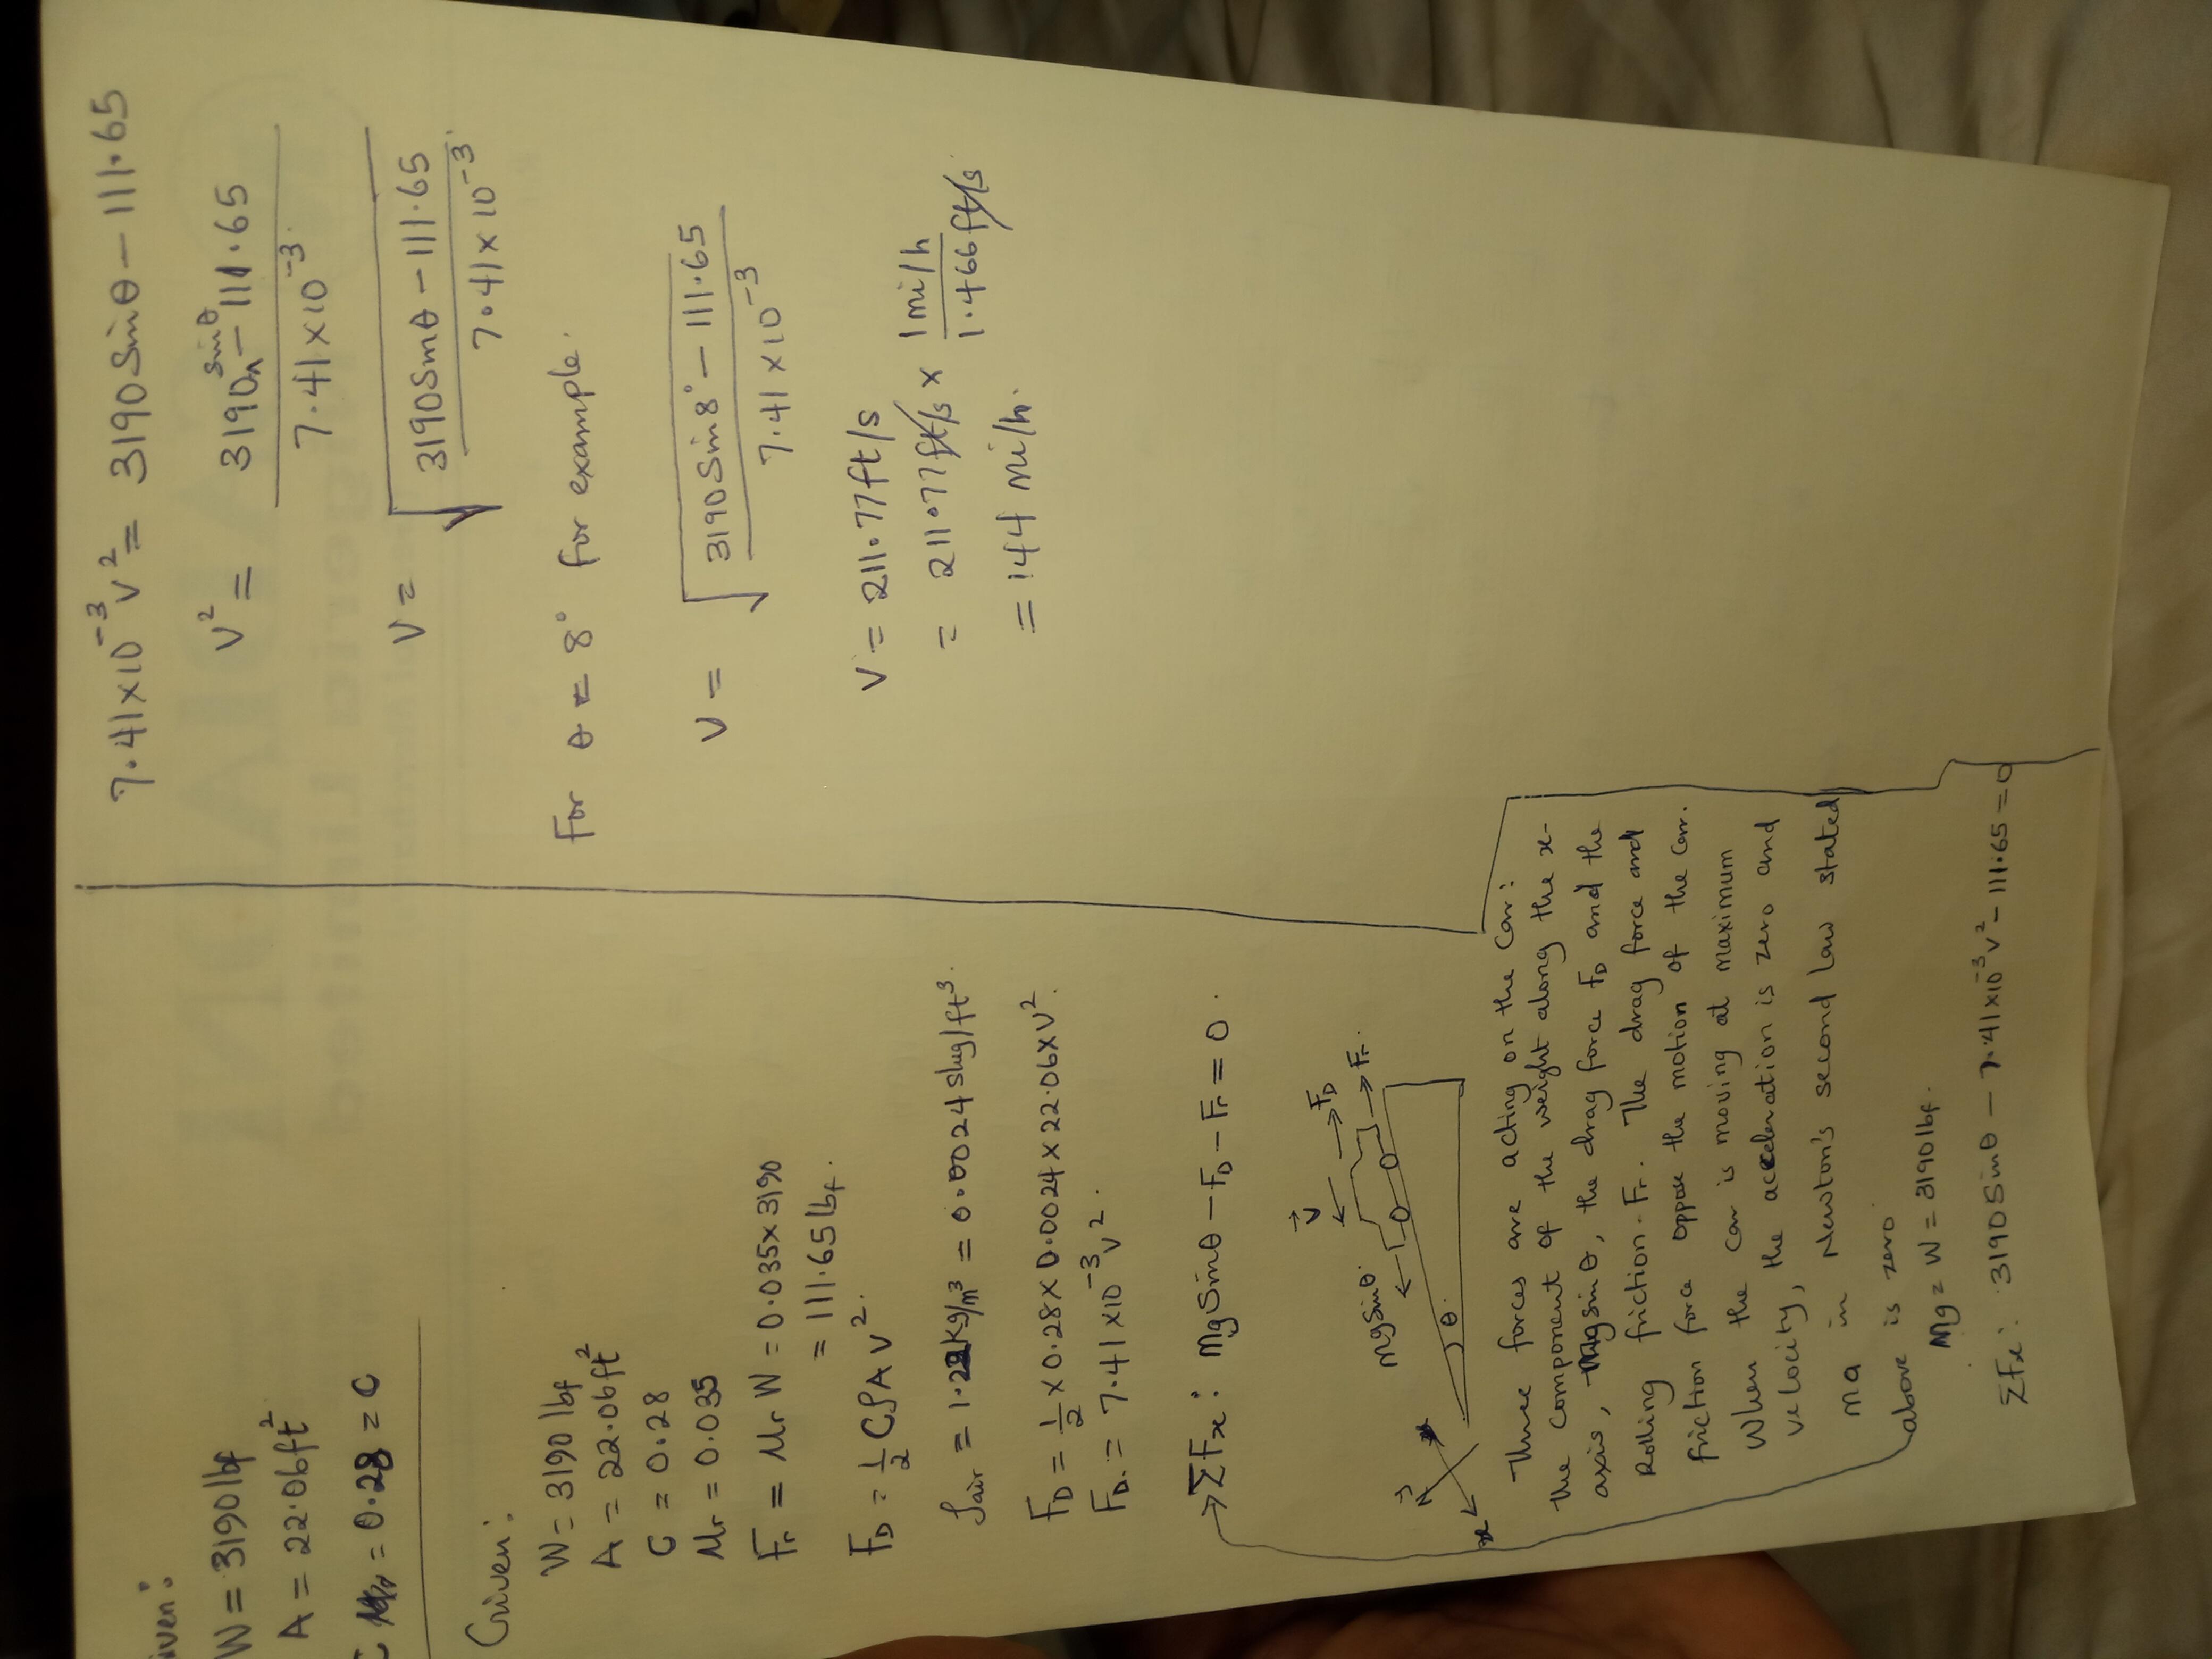 iven:
W = 3190 lbf
A = 22.06ft²
C = 0.28 = C
Given:
W = 3190 lbf
A = 22.06ft²
C = 0.28
Mr = 0.035
Fr = Mr W = 0.035x3190
= 111.65 lbf.
F_D = 1/2 CρAV².
ρair = 1.2kg/m³ = 0.0024 slug/ft³.
F_D = 1/2 x 0.28 x 0.0024 x 22.06 x V².
F_D. = 7.41x10⁻³v².
→ΣFx: mgSinθ - F_D - Fr = 0.
V⃗
mgSinθ.
F_D
Fr.
θ
N⃗
x
Three forces are acting on the Car:
the component of the weight along the x-
axis, mgsinθ, the drag force F_D and the
Rolling friction. Fr. The drag force and
friction force oppose the motion of the Car.
When the Car is moving at maximum
velocity, the acceleration is zero and
ma in Newton's second law stated
above is zero.
Mg = W = 3190 lbf.
ΣFx: 3190 Sinθ - 7.41x10⁻³v² - 111.65 = 0
7.41x10⁻³v² = 3190 Sinθ - 111.65
v² = 3190 sinθ - 111.65 / 7.41x10⁻³.
V = √(3190Sinθ - 111.65 / 7.41x10⁻³.)
For θ = 8° for example.
V = √(3190Sin8° - 111.65 / 7.41x10⁻³)
V = 211.77ft/s
= 211.77ft/s x 1mi/h / 1.466ft/s.
= 144 mi/h.